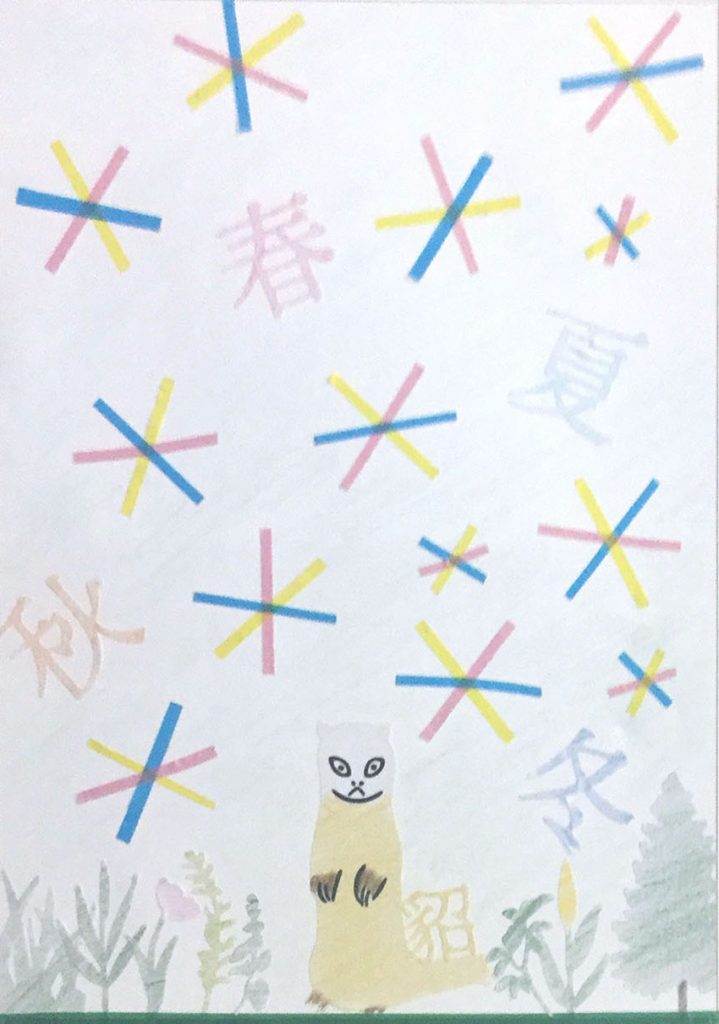 春
夏
秋
冬
貂